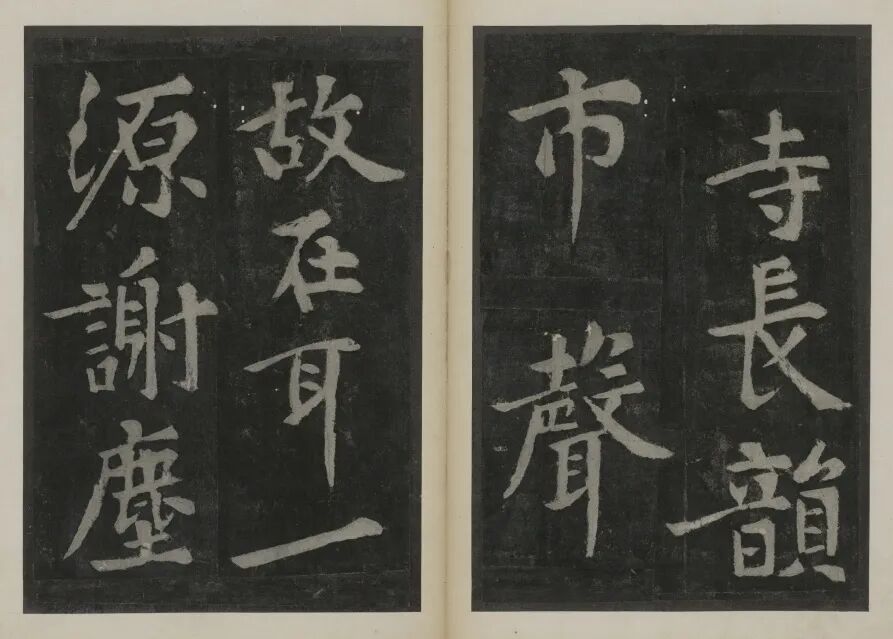 寺長韻
市聲
故在耳一
源謝塵